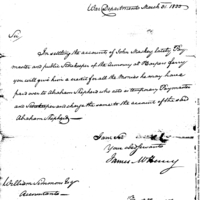 War Department March 21. 1800
Sir,
In settling the accounts of John Mackey late Pay
master and public Storekeeper of the armoury at Harpers ferry
you will give him a credit for all the Monies he may have
paid over to Abraham Shepherd who acts as temporary Paymaster
and Storekeeper and charge the same to the account of the said
Abraham Shepherd.
I am Sir
Your obed servant
James McHenry
William Simmons Esqr
Accountant